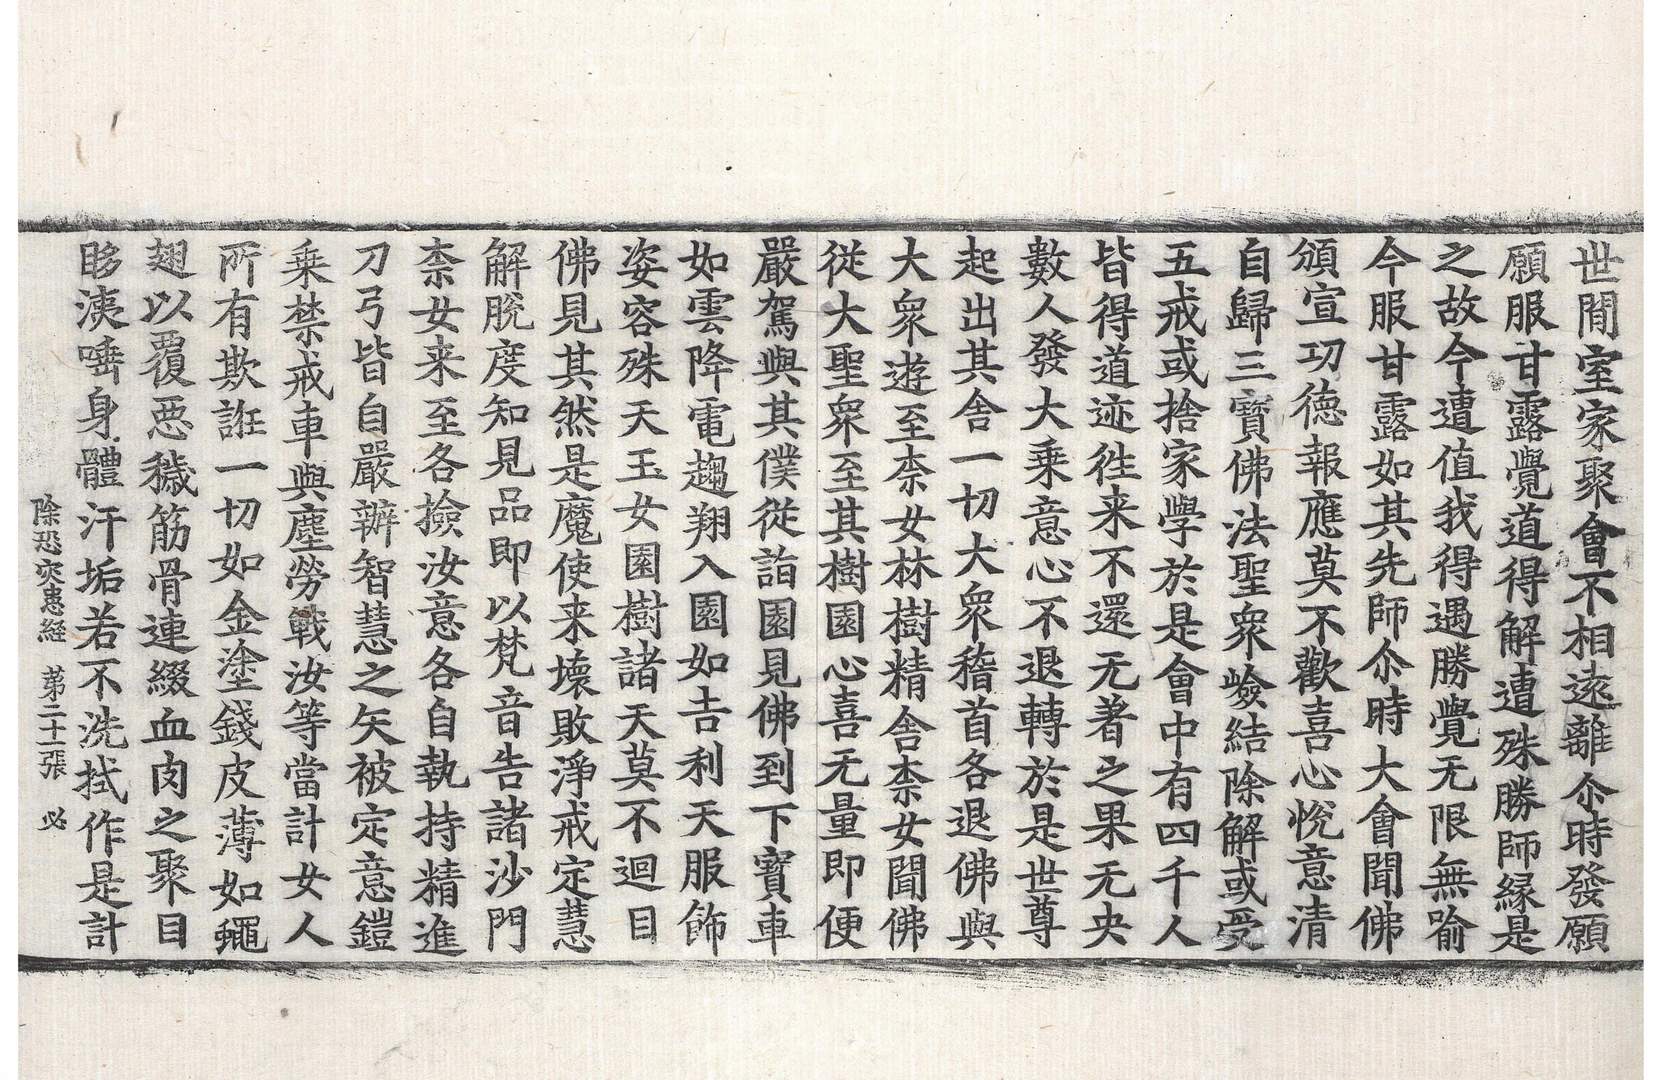 世間室家聚會不相遠離尒時發願
願服甘露覺道得解遭殊勝師縁是
之故今遭值我得遇勝覺无限無喻
今服甘露如其先師尒時大會聞佛
頒宣功德報應莫不歡喜心悅意清
自歸三寶佛法聖衆燄結除解或受
五戒或捨家學於是會中有四千人
皆得道迹徃来不還无著之果无央
數人發大乗意心不退轉於是世尊
起出其舍一切大衆稽首各退佛與
大衆遊至柰女林樹精舍柰女聞佛
從大聖衆至其樹園心喜无量即便
嚴駕與其僕從詣園見佛到下寶車
如雲降電趨翔入園如吉利天服飾
姿容殊天玉女園樹諸天莫不迴目
佛見其然是魔使来壊敗淨戒定慧
解脫度知見品即以梵音告諸沙門
柰女来至各撿汝意各自執持精進
刀弓皆自嚴辦智慧之矢被定意鎧
乗禁戒車與塵勞戰汝等當計女人
所有欺誑一切如金塗錢皮薄如蠅
翅以覆惡穢筋骨連綴血肉之聚目
眵洟唾身體汗垢若不洗拭作是計
除恐灾患経　苐二十一張　必